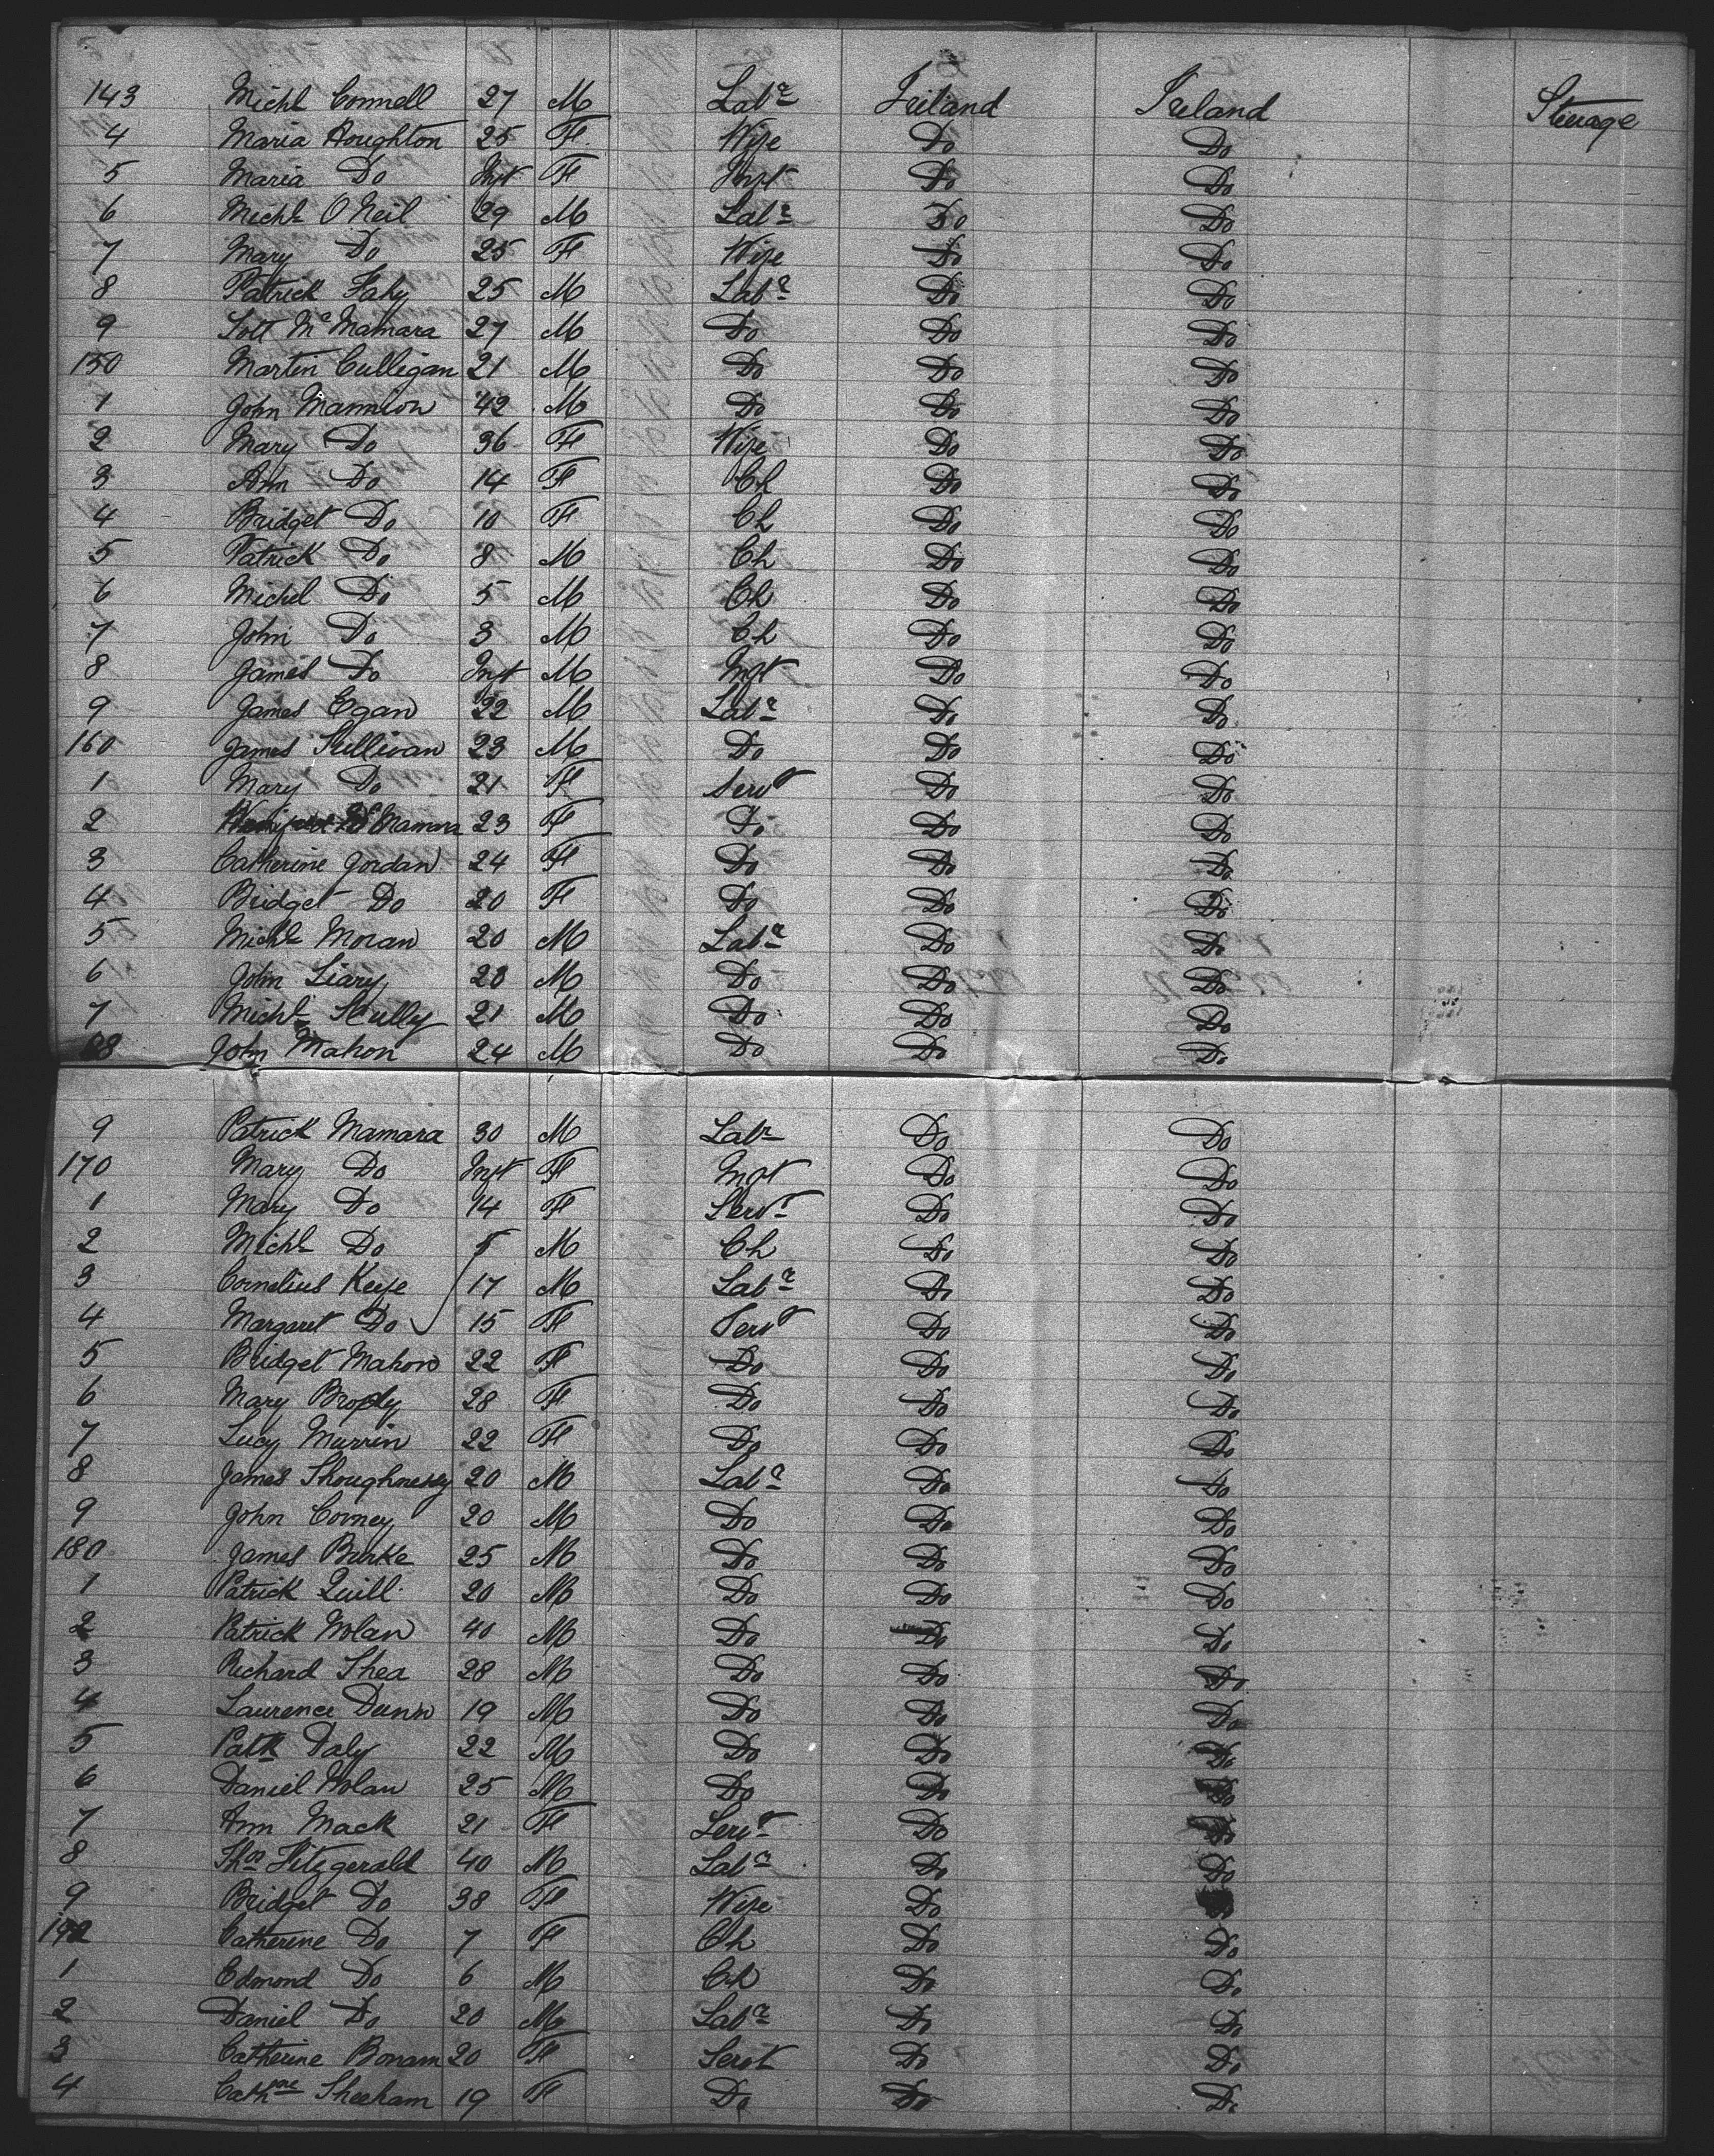 143 Michl Connell 27 M Labr Ireland Ireland Steerage
4 Maria Houghton 25 F Wife Do Do
5 Maria Do Inft F Inft Do Do
6 Michl O'Neil 29 M Labr Do Do
7 Mary Do 25 F Wife Do Do
8 Patrick Fahy 25 M Labr Do Do
9 McMamara 27 M Do Do Do
150 Martin Culligan 21 M Do Do Do
1 John Mannion 42 M Do Do Do
2 Mary Do 36 F Wife Do Do
3 Ann Do 14 F Ch Do Do
4 Bridget Do 10 F Ch Do Do
5 Patrick Do 8 M Ch Do Do
6 Michel Do 5 M Ch Do Do
7 John Do 3 M Ch Do Do
8 James Do Inft M Inft Do Do
9 James Egan 22 M Labr Do Do
160 James Sullivan 23 M Do Do Do
1 Mary Do 21 F Servt Do Do
2 23 F Do Do Do
3 Catherine Jordan 24 F Do Do Do
4 Bridget Do 20 F Do Do Do
5 Michl Moran 20 M Labr Do Do
6 John Liary 28 M Do Do Do
7 Michl Scully 21 M Do Do Do
68 John Mahon 24 M Do Do Do
9 Patrick Mamara 30 M Labr Do Do
170 Mary Do Inft F Inft Do Do
1 Mary Do 14 F Servt Do Do
2 Michl Do 5 M Ch Do Do
3 Cornelius Keefe 17 M Labr Do Do
4 Margaret Do 15 F Servt Do Do
5 Bridget Mahon 22 F Do Do Do
6 Mary Brophy 28 F Do Do Do
7 Lucy Murrin 22 F Do Do Do
8 James Shoughnessy 20 M Labr Do Do
9 John Corney 20 M Do Do Do
180 James Burke 25 M Do Do Do
1 Patrick Quill 20 M Do Do Do
2 Patrick Nolan 40 M Do Do Do
3 Richard Shea 28 M Do Do Do
4 Laurence Dunn 19 M Do Do Do
5 Patk Daly 22 M Do Do Do
6 Daniel Nolan 25 M Do Do Do
7 Ann Mack 21 F Servt Do Do
8 Thos Fitzgerald 40 M Labr Do Do
9 Bridget Do 38 F Wife Do
190 Catherine Do 7 F Ch Do Do
1 Edmond Do 6 M Ch Do Do
2 Daniel Do 20 M Labr Do Do
3 Catherine Bonam 20 F Servt Do Do
4 Cathne Sheeham 19 F Do Do Do